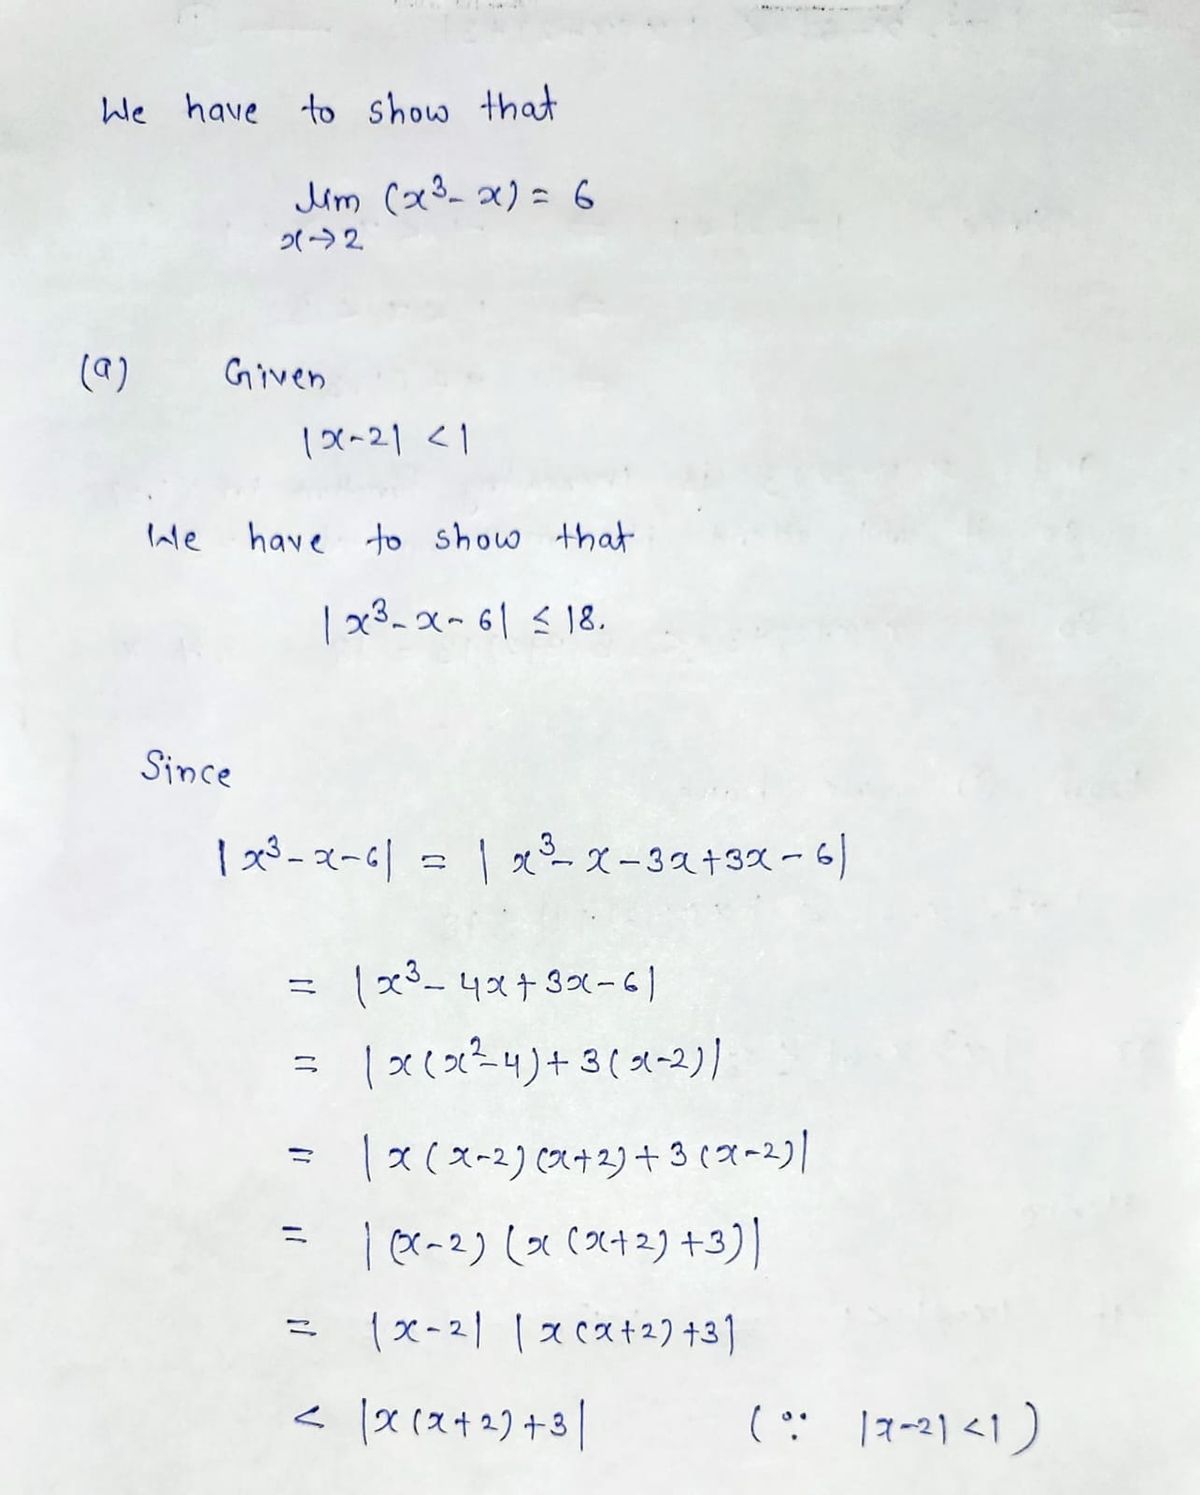 We have to show that
lim (x³ - x) = 6
x→2
(a) Given
|x-2| < 1
We have to show that
|x³ - x - 6| ≤ 18.
Since
|x³ - x - 6| = |x³ - x - 3x + 3x - 6|
= |x³ - 4x + 3x - 6|
= |x(x² - 4) + 3(x-2)|
= |x(x-2)(x+2) + 3(x-2)|
= |(x-2)(x(x+2)+3)|
= |x-2| |x(x+2)+3|
< |x(x+2)+3| (∵ |x-2| < 1)